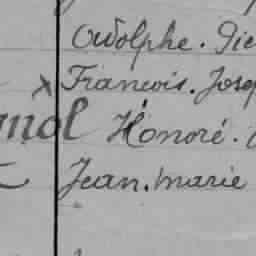 Adolphe. Pie
x Francois. Josep
mol Honoré.
Jean. marie